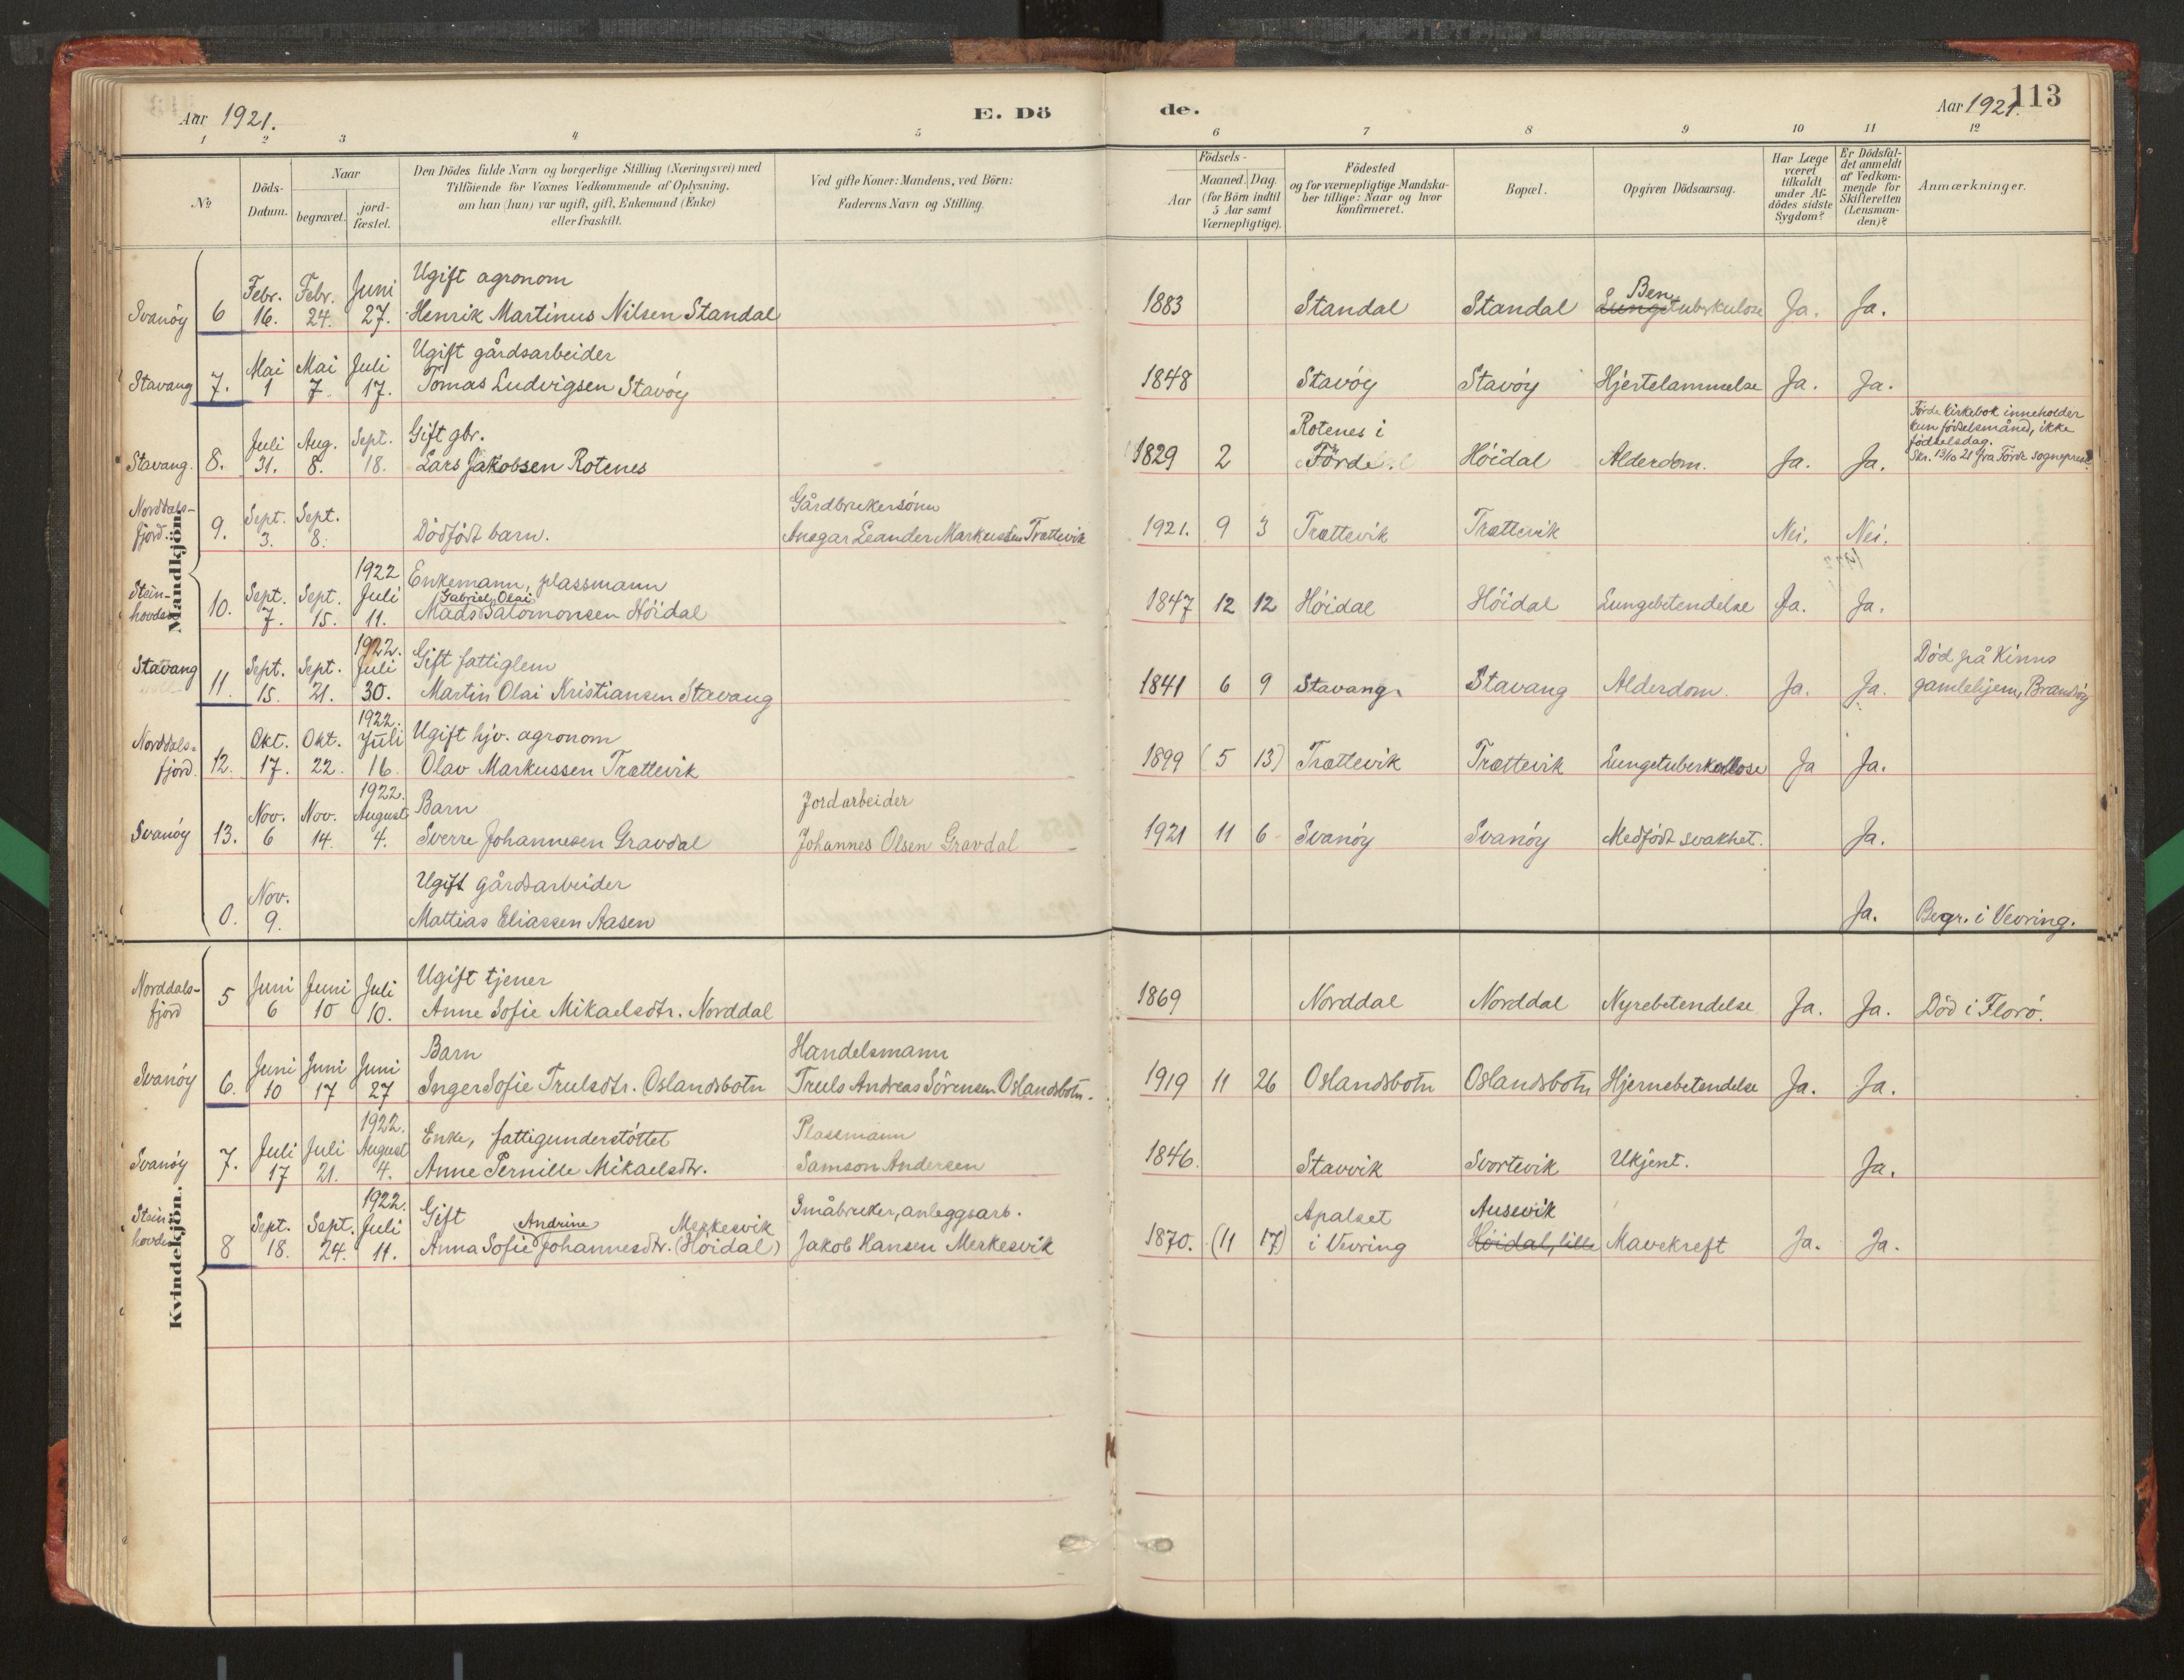 Aar 1921. E. Dö de. Aar 1921. 113
1 2 3 4 5 6 7 8 9 10 11 12
No
Döds-Datum.
Naar
begravet.
jord-fæstet.
Den Dödes fulde Navn og borgerlige Stilling (Næringsvei) med
Tilföiende for Voxnes Vedkommende af Oplysning,
om han (hun) var ugift, gift, Enkemand (Enke)
eller fraskilt.
Ved gifte Koner: Mandens, ved Börn:
Faderens Navn og Stilling.
Födsels-
Aar
Maaned. Dag.
(for Börn indtil
5 Aar samt
Værnepligtige).
Födested
og for værnepligtige Mandska-
ber tillige: Naar og hvor
konfirmeret.
Bopæl.
Opgiven Dödsaarsag.
Har Læge
været
tilkaldt
under Af-
dödes sidste
Sygdom?
Er Dödsfal-
det anmeldt
af Vedkom-
mende for
Skifteretten
(Lensman-
den)?
Anmærkninger.
Mandkjön.
Febr. Febr. Juni Ugift agronom Ben
Svanöy 6 16. 24. 27. Henrik Martinus Nilsen Standal 1883 Standal Standal Lungetuberkulose Ja. Ja.
Mai Mai Juli Ugift gårdsarbeider
Stavang 7. 1 7. 17. Tomas Ludvigsen Stavöy 1848 Stavöy Stavöy Hjertelammelse Ja. Ja.
Juli Aug. Sept. Gift gbr. Rotenes i
Stavang. 8. 31. 8. 18. Lars Jakobsen Rotenes 1829 2 Förde Höidal Alderdom. Ja. Ja.
Förde kirkebok inneholder
kun födselsmåned, ikke
födselsdag.
Skr. 13/10 21 fra Förde sogneprest.
Norddals- Sept. Sept. Gårdbrukersönn
fjord. 9. 3. 8. Dödfödt barn. Ansgar Leander Markussen Trættevik 1921. 9 3 Trættevik Trættevik Nei. Nei.
1922
Stein- Sept. Sept. Juli Enkemann, plassmann
Gabriel Olai
hovden 10. 7. 15. 11. Mads Salomonsen Höidal 1847 12 12 Höidal Höidal Lungebetendelse Ja. Ja.
1922.
Stavang Sept. Sept. Juli Gift fattiglem Död på Kinns
11. 15. 21. 30. Martin Olai Kristiansen Stavang 1841 6 9 Stavang Stavang Alderdom. Ja. Ja. gamlehjem, Brandsöy
1922.
Norddals- Okt. Okt. Juli Ugift hjv. agronom
fjord. 12. 17. 22. 16. Olav Markussen Trættevik 1899 (5 13) Trættevik Trættevik Lungetuberkulose Ja Ja.
1922.
Nov. Nov. August Barn Jordarbeider
Svanöy 13. 6 14. 4. Sverre Johannesen Gravdal Johannes Olsen Gravdal 1921 11 6 Svanöy Svanöy Medfödt svakhet. Ja.
Nov. Ugift gårdsarbeider
0. 9. Mattias Eliassen Aasen Ja. Begr. i Vevring.
Kvindekjön.
Norddals- Juni Juni Juli Ugift tjener
fjord 5 6 10 10. Anne Sofie Mikaelsdtr. Norddal 1869 Norddal Norddal Nyrebetendelse Ja. Ja. Död i Florö.
Juni Juni Juni Barn Handelsmann
Svanöy 6. 10 17 27 Inger Sofie Trulsdtr. Oslandsbotn Truls Andreas Sörensen Oslandsbotn. 1919 11 26 Oslandsbotn Oslandsbotn Hjernebetendelse Ja. Ja.
1922.
Juli Juli August Enke, fattigunderstöttet Plassmann
Svanöy 7. 17 21. 4. Anne Pernille Mikaelsdtr. Samson Andersen 1846. Stavvik Svortevik Ukjent. Ja.
1922.
Stein- Sept. Sept. Juli Gift Andrine Merkesvik Småbruker, anleggsarb. Apalset Ausevik
hovden 8 18. 24. 11. Anna Sofie Johannesdtr. (Höidal) Jakob Hansen Merkesvik 1870. (11 17) i Vevring Höidal, lille Mavekreft Ja. Ja.